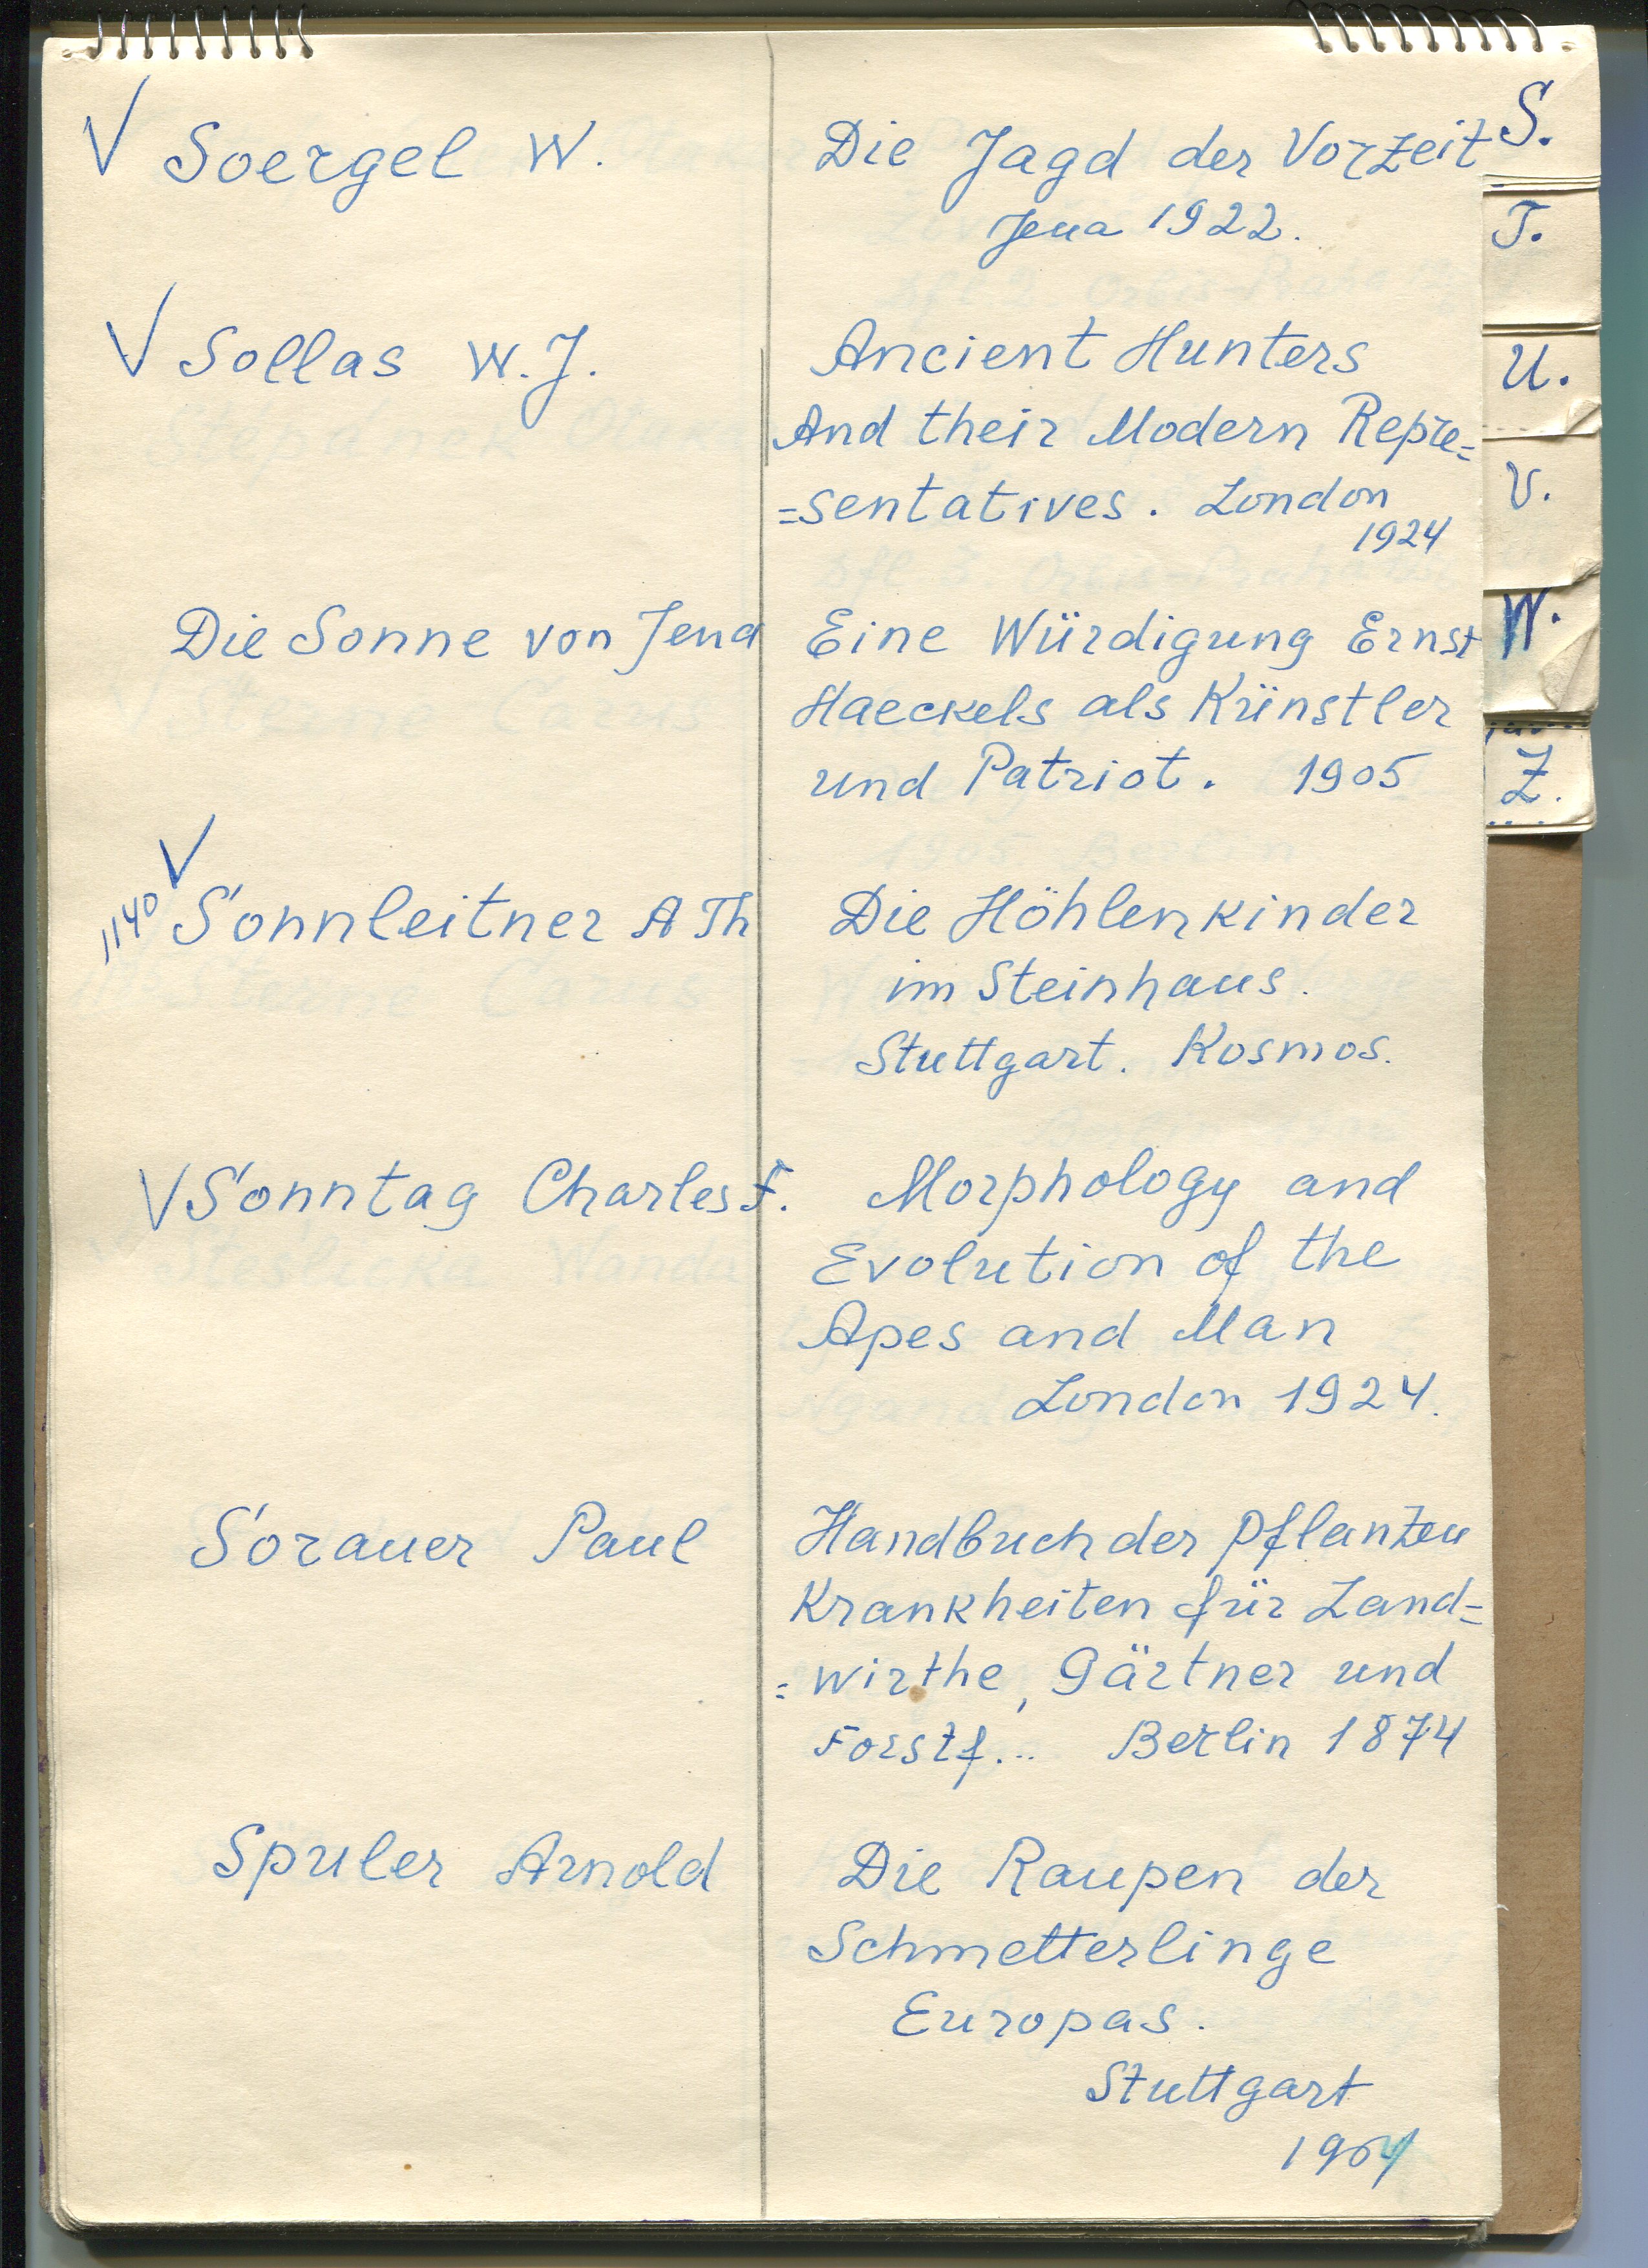 V Soergel W. Die Jagd der Vorzeit
Jena 1922.
V Sollas W.J. Ancient Hunters
And their Modern Repre=
=sentatives. London
1924
Die Sonne von Jena Eine Würdigung Ernst
Haeckels als Künstler
und Patriot. 1905
V
1140 Sonnleitner A Th Die Höhlenkinder
im Steinhaus.
Stuttgart. Kosmos.
V Sonntag Charles F. Morphology and
Evolution of the
Apes and Man
London 1924.
Sorauer Paul Handbuch der Pflanzen
Krankheiten für Land=
=wirthe, Gärtner und
Forstf... Berlin 1874
Spuler Arnold Die Raupen der
Schmetterlinge
Europas.
Stuttgart
1904
S.
T.
U.
V.
W.
Z.